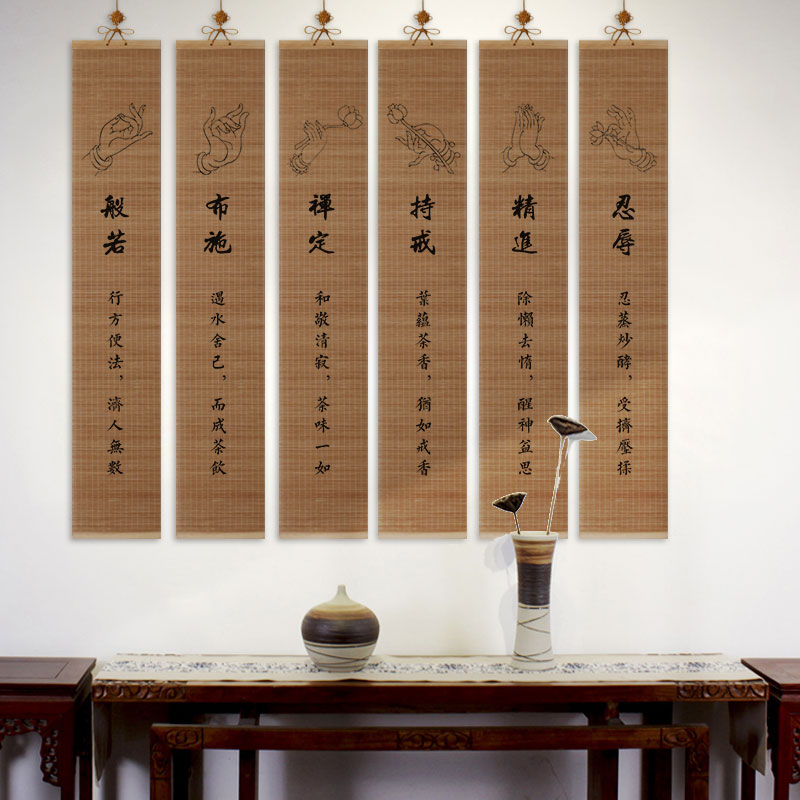 般若
行方便法，濟人無數
布施
遇水舍己，而成茶飲
禪定
和敬清寂，茶味一如
持戒
葉蘊茶香，猶如戒香
精進
除懶去惰，醒神益思
忍辱
忍蒸炒酵，受擠壓揉